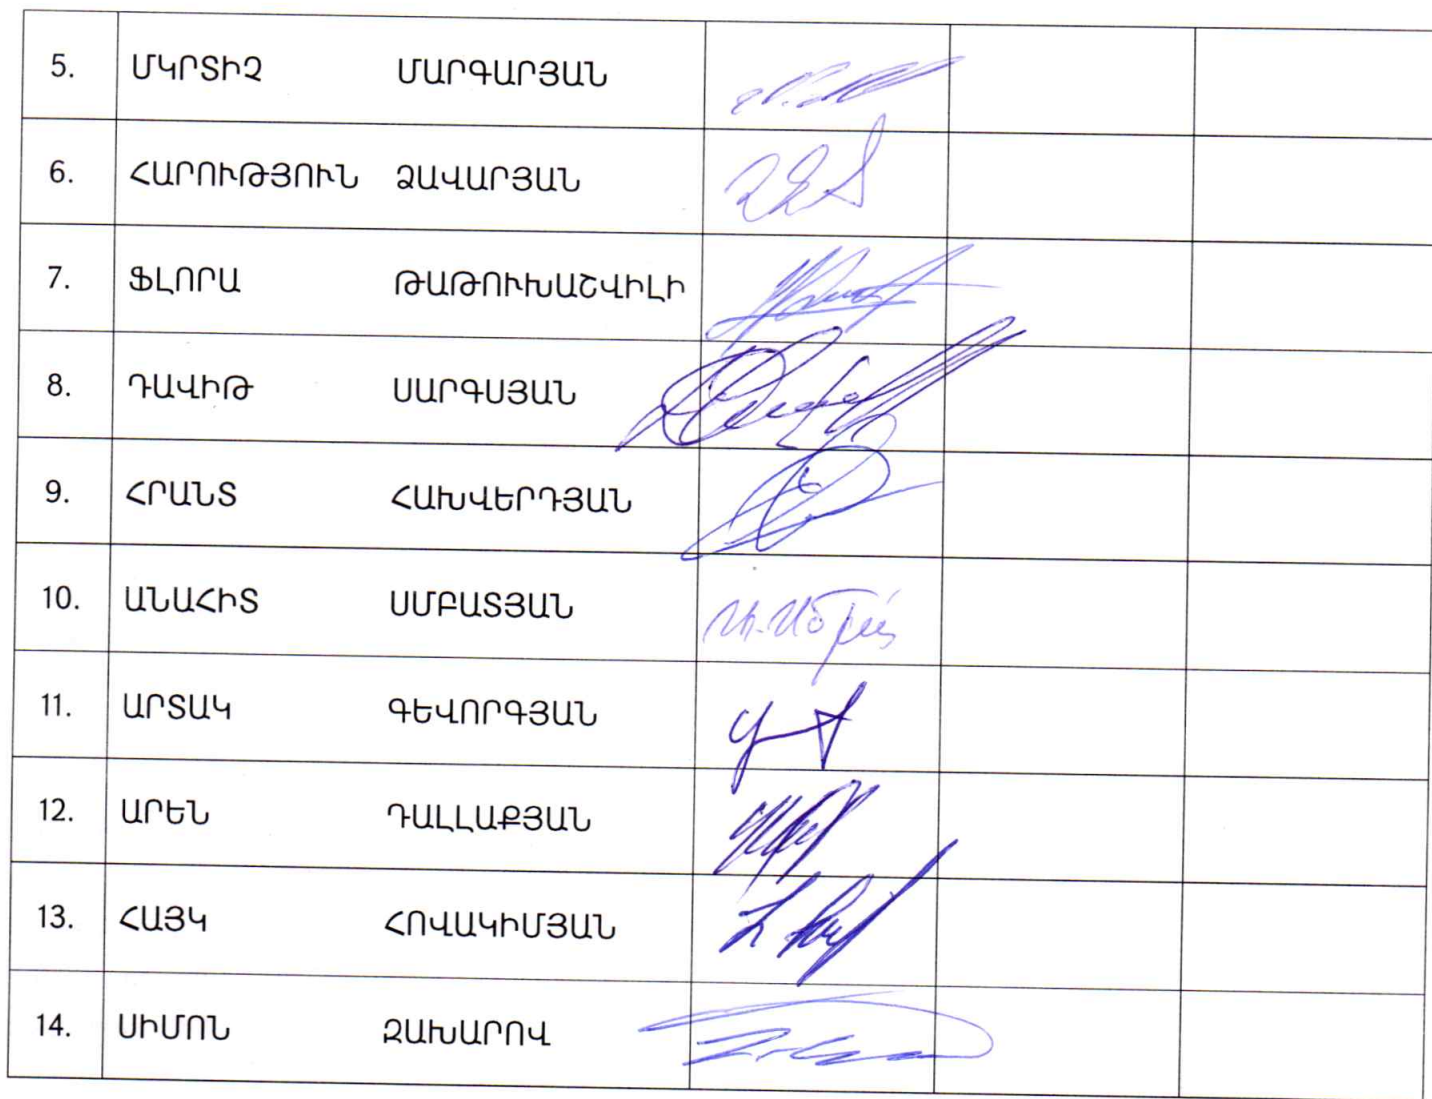 5. ՄԿՐՏԻՉ ՄԱՐԳԱՐՅԱՆ
6. ՀԱՐՈՒԹՅՈՒՆ ՁԱՎԱՐՅԱՆ
7. ՖԼՈՐԱ ԹԱԹՈՒԽԱՇՎԻԼԻ
8. ԴԱՎԻԹ ՍԱՐԳՍՅԱՆ
9. ՀՐԱՆՏ ՀԱԽՎԵՐԴՅԱՆ
10. ԱՆԱՀԻՏ ՍՄԲԱՏՅԱՆ
11. ԱՐՏԱԿ ԳԵՎՈՐԳՅԱՆ
12. ԱՐԵՆ ԴԱԼԼԱՔՅԱՆ
13. ՀԱՅԿ ՀՈՎԱԿԻՄՅԱՆ
14. ՍԻՄՈՆ ԶԱԽԱՐՈՎ